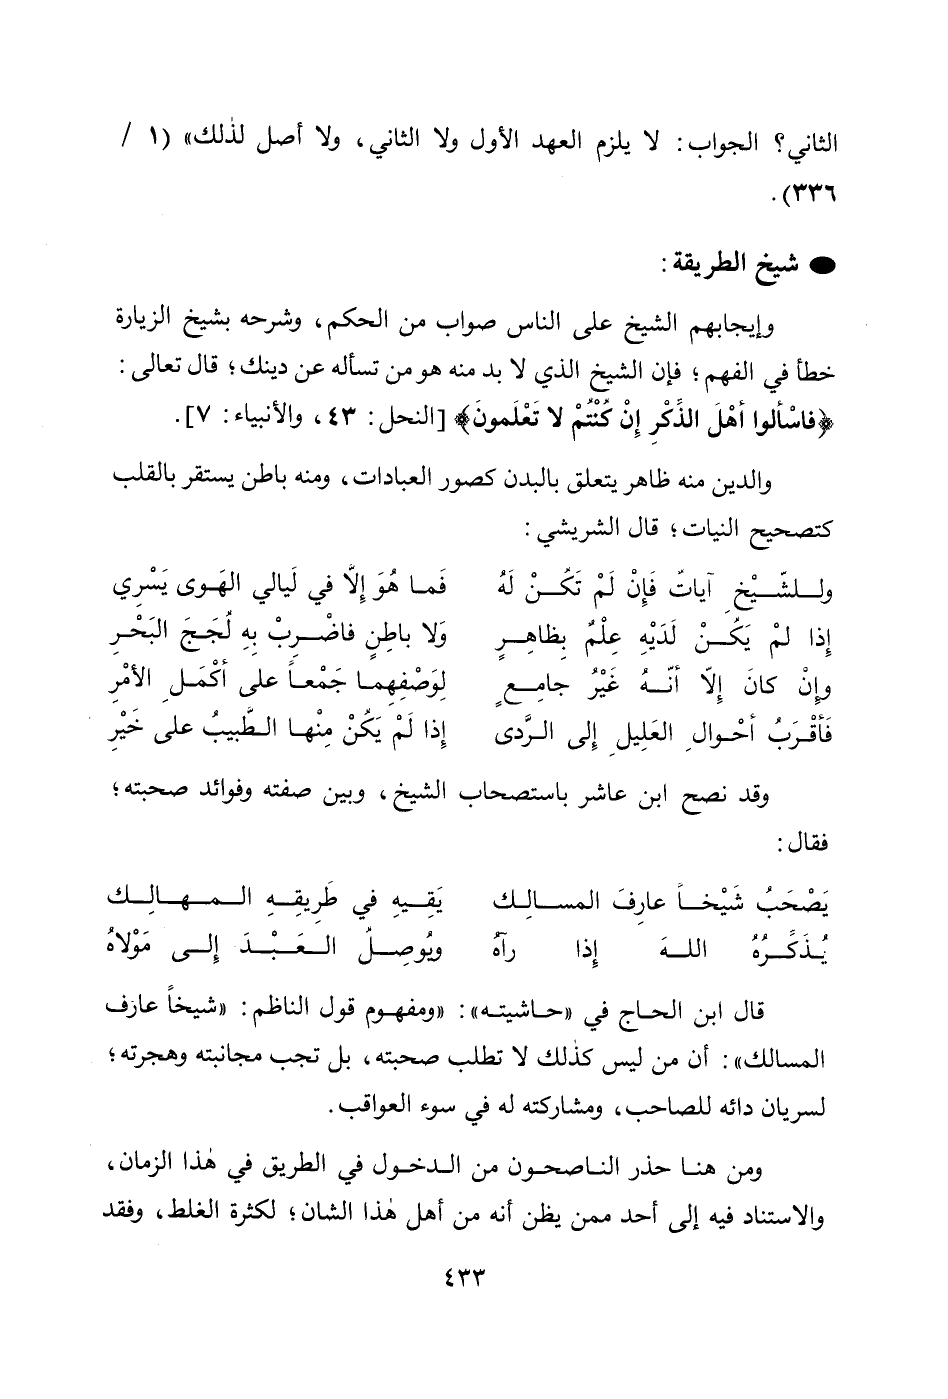 الثاني؟ الجواب: لا يلزم العهد الأول ولا الثاني، ولا أصل لذٰلك» (١ /
٣٣٦).
● شيخ الطريقة:
وإيجابهم الشيخ على الناس صواب من الحكم، وشرحه بشيخ الزيارة
خطأ في الفهم؛ فإن الشيخ الذي لا بد منه هو من تسأله عن دينك؛ قال تعالى:
﴿فاسْألوا أهْلَ الذِّكْرِ إنْ كُنْتُمْ لا تَعْلَمونَ﴾ [النحل: ٤٣، والأنبياء: ٧].
والدين منه ظاهر يتعلق بالبدن كصور العبادات، ومنه باطن يستقر بالقلب
كتصحيح النيات؛ قال الشريشي:
ولــلشّــيْخِ آياتٌ فَإنْ لَمْ تَكُــنْ لَهُ فَمـا هُوَ إلَّا في لَيالي الهَوى يَسْرِي
إذا لمْ يَكُــنْ لَدَيْهِ عِلْمٌ بِظاهِــرٍ وَلا باطِنٍ فاضْرِبْ بِهِ لُجَجَ البَحْرِ
وإنْ كانَ إلّا أنّــهُ غَيْرُ جامِعٍ لِوَصْفِهِمـا جَمْعـاً على أكْمَلِ الأمْرِ
فَأقْرَبُ أحْوالِ العَليلِ إلى الرَّدى إذا لَمْ يَكُنْ مِنْهـا الطَّبيبُ على خَيْرِ
وقد نصح ابن عاشر باستصحاب الشيخ، وبين صفته وفوائد صحبته؛
فقال:
يَصْحَبُ شَيْخـاً عارِفَ المسـالِك يَقيهِ في طَريقِهِ المـهـالِك
يُذَكِّرُهُ اللهَ إذا رآهُ ويُوصِلُ العَبْدَ إلى مَوْلاهُ
قال ابن الحاج في «حاشيته»: «ومفهوم قول الناظم: «شيخاً عارف
المسالك»: أن من ليس كذٰلك لا تطلب صحبته، بل تجب مجانبته وهجرته؛
لسريان دائه للصاحب، ومشاركته له في سوء العواقب.
ومن هنا حذر الناصحون من الدخول في الطريق في هٰذا الزمان،
والاستناد فيه إلى أحد ممن يظن أنه من أهل هٰذا الشان؛ لكثرة الغلط، وفقد
٤٣٣